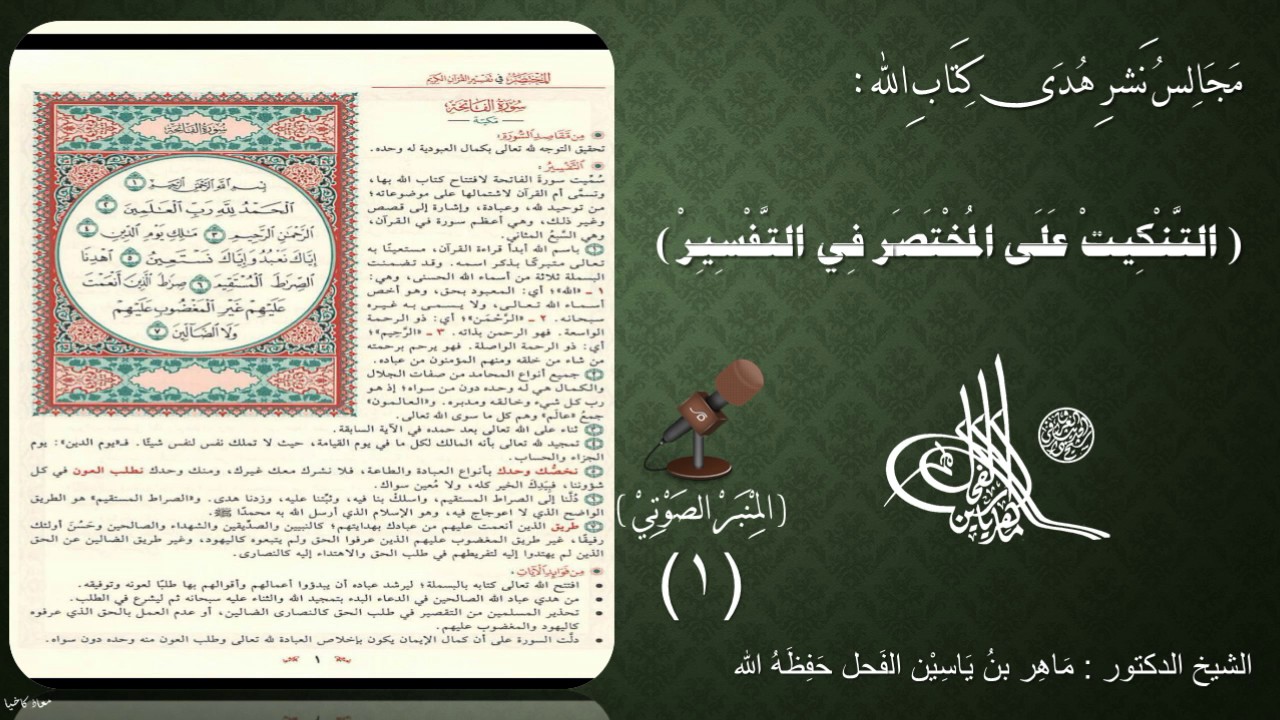 مَجَالِسُ نَشرِ هُدَى كِتَابِ اللهِ :
( التَّنْكِيتْ عَلَى المُخْتَصَرَ فِي التَّفْسِيْرِ )
(المِنْبَرْ الصَوْتِيْ)
(١)
الشيخ الدكتور : مَاهِر بنُ يَاسِيْن الفَحل حَفِظَهُ الله
المختصر في تفسير القرآن الكريم
سورة الفاتحة
مكية
من مقاصد السورة:
تحقيق التوجه لله تعالى بكمال العبودية له وحده.
التفسير:
سُمِّيت سورة الفاتحة لافتتاح كتاب الله بها،
وتسمَّى أم القرآن لاشتمالها على موضوعاته؛
من توحيد لله، وعبادة، وإشارة إلى قصص
وغير ذلك، وهي أعظم سورة في القرآن،
وهي السَّبع المثاني.
١ باسم الله أبدأ قراءة القرآن، مستعينًا به
تعالى متبركًا بذكر اسمه. وقد تضمنت
البسملة ثلاثة من أسماء الله الحسنى، وهي:
١ - «الله»؛ أي: المعبود بحق، وهو أخص
أسماء الله تعالى، ولا يسمى به غيره
سبحانه. ٢ - «الرَّحْمَن»؛ أي: ذو الرحمة
الواسعة. فهو الرحمن بذاته. ٣ - «الرَّحِيم»؛
أي: ذو الرحمة الواصلة. فهو يرحم برحمته
من شاء من خلقه ومنهم المؤمنون من عباده.
٢ جميع أنواع المحامد من صفات الجلال
والكمال هي له وحده دون من سواه؛ إذ هو
رب كل شيء وخالقه ومدبره. و«العالمون»
جمعُ «عالَم» وهم كل ما سوى الله تعالى.
٣ ثناء على الله تعالى بعد حمده في الآية السابقة.
٤ تمجيد لله تعالى بأنه المالك لكل ما في يوم القيامة، حيث لا تملك نفس لنفس شيئًا. فـ«يوم الدين»: يوم
الجزاء والحساب.
٥ نخصُّك وحدك بأنواع العبادة والطاعة، فلا نشرك معك غيرك، ومنك وحدك نطلب العون في كل
شؤوننا، فبيدك الخير كله، ولا مُعين سواك.
٦ دُلَّنا إلى الصراط المستقيم، واسلك بنا فيه، وثبِّتنا عليه، وزدنا هدى. و«الصراط المستقيم» هو الطريق
الواضح الذي لا اعوجاج فيه، وهو الإسلام الذي أرسل الله به محمدًا ﷺ.
٧ طريق الذين أنعمت عليهم من عبادك بهدايتهم؛ كالنبيين والصدِّيقين والشهداء والصالحين وحَسُنَ أولئك
رفيقًا، غير طريق المغضوب عليهم الذين عرفوا الحق ولم يتبعوه كاليهود، وغير طريق الضالين عن الحق
الذين لم يهتدوا إليه لتفريطهم في طلب الحق والاهتداء إليه كالنصارى.
من فوائد الآيات:
• افتتح الله تعالى كتابه بالبسملة؛ ليرشد عباده أن يبدؤوا أعمالهم وأقوالهم بها طلبًا لعونه وتوفيقه.
• من هدي عباد الله الصالحين في الدعاء البدء بتمجيد الله والثناء عليه سبحانه ثم ليشرع في الطلب.
• تحذير المسلمين من التقصير في طلب الحق كالنصارى الضالين، أو عدم العمل بالحق الذي عرفوه
كاليهود والمغضوب عليهم.
• دلَّت السورة على أن كمال الإيمان يكون بإخلاص العبادة لله تعالى وطلب العون منه وحده دون سواه.
١
سورة الفاتحة
بِسْمِ ٱللَّهِ ٱلرَّحْمَٰنِ ٱلرَّحِيمِ ١
ٱلْحَمْدُ لِلَّهِ رَبِّ ٱلْعَٰلَمِينَ ٢
ٱلرَّحْمَٰنِ ٱلرَّحِيمِ ٣ مَٰلِكِ يَوْمِ ٱلدِّينِ ٤
إِيَّاكَ نَعْبُدُ وَإِيَّاكَ نَسْتَعِينُ ٥ ٱهْدِنَا
ٱلصِّرَٰطَ ٱلْمُسْتَقِيمَ ٦ صِرَٰطَ ٱلَّذِينَ أَنْعَمْتَ
عَلَيْهِمْ غَيْرِ ٱلْمَغْضُوبِ عَلَيْهِمْ
وَلَا ٱلضَّآلِّينَ ٧
معاذ كاخيا